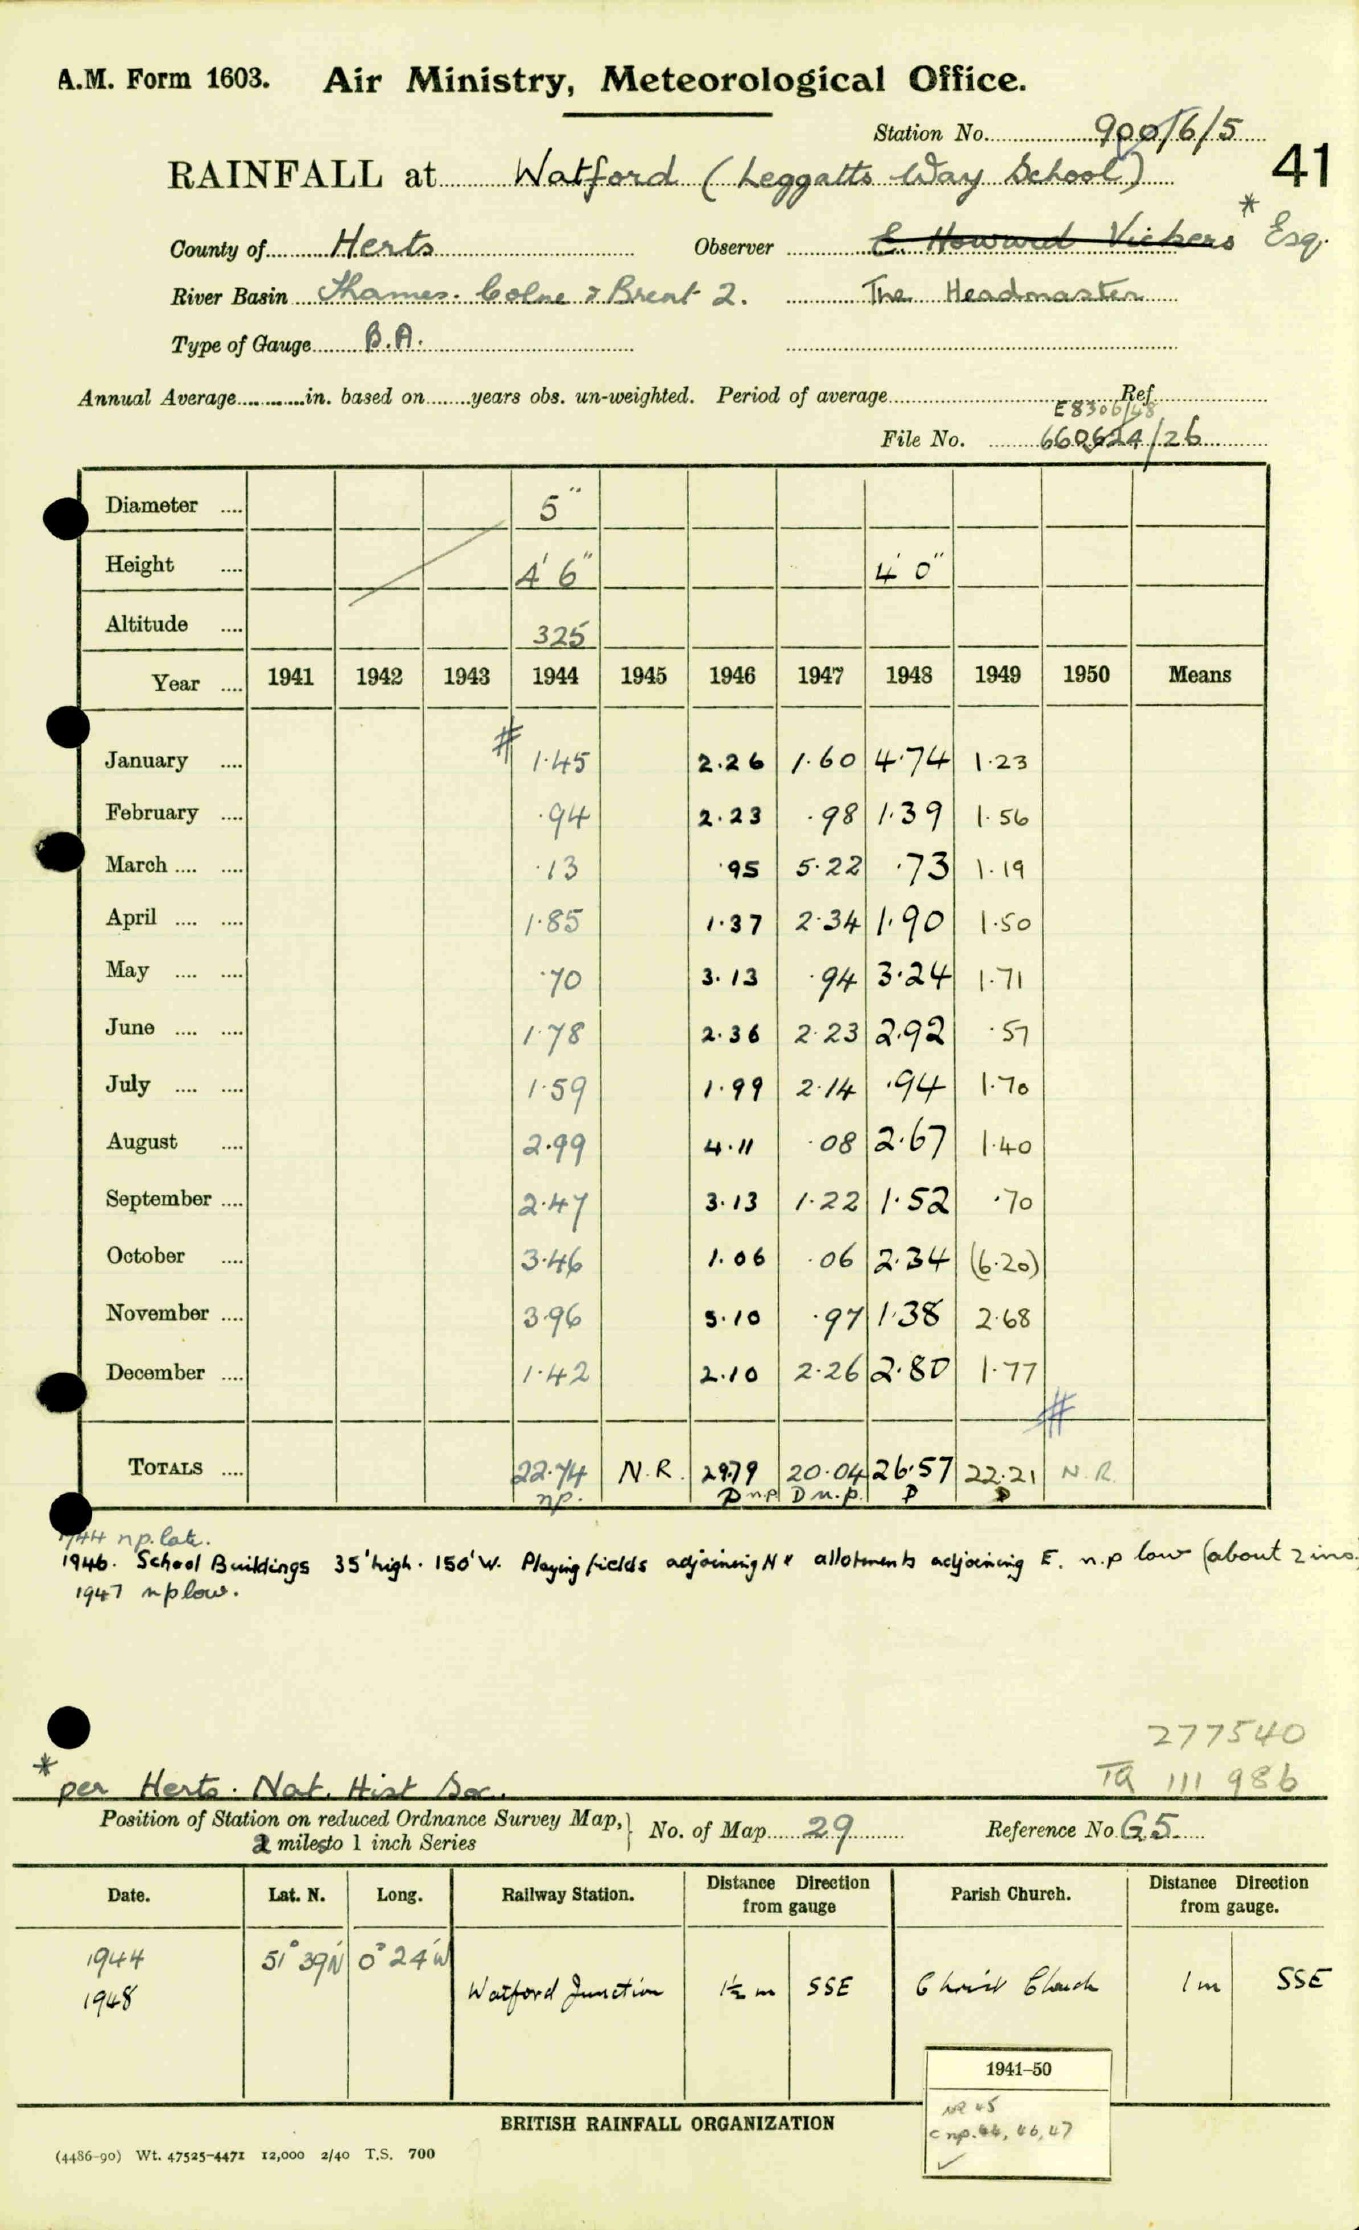 A.M. Form 1603. Air Ministry, Meteorological Office.
Station No. 900/6/5
RAINFALL at Watford (Leggatts Way School)
41
County of Herts Observer E. Howard Vickers * Esq.
River Basin Thames. Colne & Brent 2. The Headmaster
Type of Gauge B.A.
Annual Average in. based on years obs. un-weighted. Period of average Ref
E8306/48
File No. 660624/26
Diameter 5"
Height 4' 6" 4' 0"
Altitude 325
Year 1941 1942 1943 1944 1945 1946 1947 1948 1949 1950 Means
January # 1.45 2.26 1.60 4.74 1.23
February .94 2.23 .98 1.39 1.56
March .13 .95 5.22 .73 1.19
April 1.85 1.37 2.34 1.90 1.50
May .70 3.13 .94 3.24 1.71
June 1.78 2.36 2.23 2.92 .57
July 1.59 1.99 2.14 .94 1.70
August 2.99 4.11 .08 2.67 1.40
September 2.47 3.13 1.22 1.52 .70
October 3.46 1.06 .06 2.34 (6.20)
November 3.96 5.10 .97 1.38 2.68
December 1.42 2.10 2.26 2.80 1.77
#
TOTALS 22.74 N.R. 29.79 20.04 26.57 22.21 N.R.
np. D n.p D n.p. D D
1944 n.p. late.
1946. School Buildings 35' high. 150' W. Playing fields adjoining N & allotments adjoining E. n.p low (about 2 ins.
1947 n.p low.
277540
* per Herts. Nat. Hist Soc.
TQ 111 986
Position of Station on reduced Ordnance Survey Map, No. of Map 29 Reference No. G5
2 miles to 1 inch Series
Date. Lat. N. Long. Railway Station. Distance Direction from gauge Parish Church. Distance Direction from gauge.
1944 51° 39'N 0° 24'W
1948 Watford Junction 1½ m SSE Christ Church 1 m SSE
1941–50
NR 45
c np. 44, 46, 47
✓
BRITISH RAINFALL ORGANIZATION
(4486-90) Wt. 47525-4471 12,000 2/40 T.S. 700